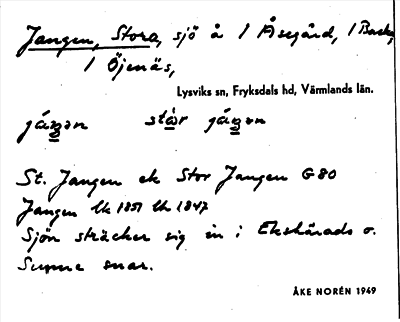 Jangen, Stora, sjö å 1 Åsegård, 1 Backa,
1 Öjenäs,
Lysviks sn, Fryksdals hd, Värmlands län.
jáŋən stòr jáŋən
St. Jangen ek Stor Jangen G80
Jangen lk 1851 lk 1847
Sjön sträcker sig in i Ekshärads o.
Sunne snar.
ÅKE NORÉN 1949